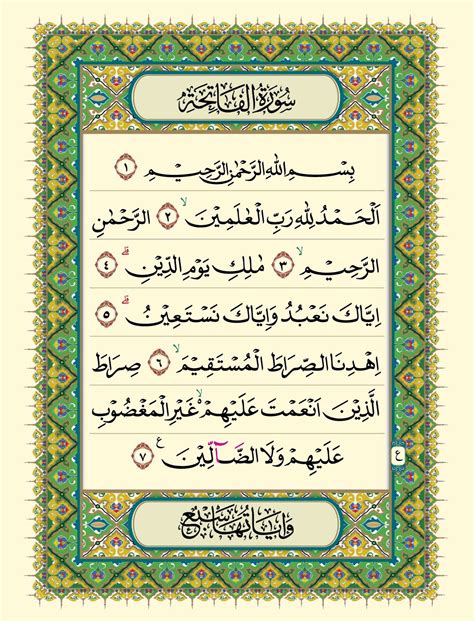 سُورَةُ الْفَاتِحَةِ
بِسْمِ اللهِ الرَّحْمٰنِ الرَّحِيْمِ ١
اَلْحَمْدُ لِلهِ رَبِّ الْعٰلَمِيْنَ ۙ ٢ الرَّحْمٰنِ
الرَّحِيْمِ ۙ ٣ مٰلِكِ يَوْمِ الدِّيْنِ ۗ ٤
اِيَّاكَ نَعْبُدُ وَاِيَّاكَ نَسْتَعِيْنُ ۗ ٥
اِهْدِنَا الصِّرَاطَ الْمُسْتَقِيْمَ ۙ ٦ صِرَاطَ
الَّذِيْنَ اَنْعَمْتَ عَلَيْهِمْ ۙ غَيْرِ الْمَغْضُوْبِ
عَلَيْهِمْ وَلَا الضَّآلِّيْنَ ع ٧
ع
وَاٰيَاتُهَا سَبْعٌ